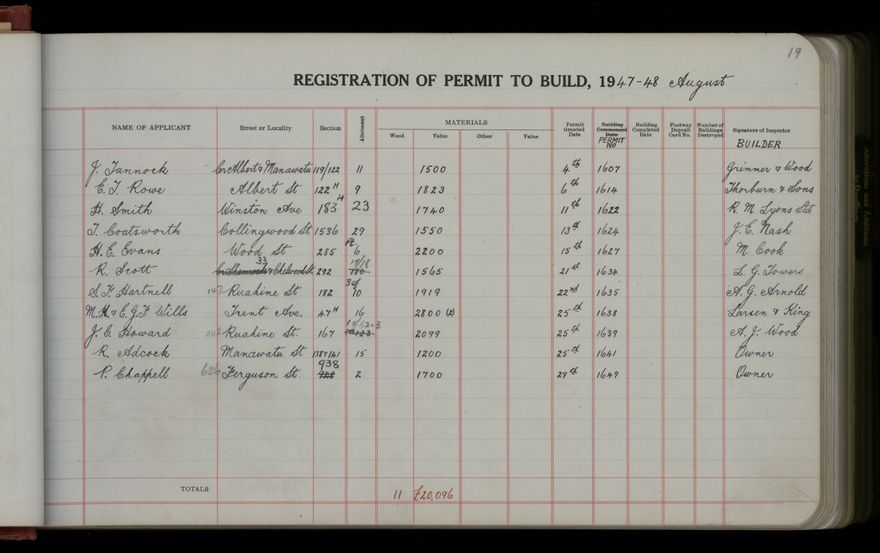 19
REGISTRATION OF PERMIT TO BUILD, 1947-48 August
NAME OF APPLICANT Street or Locality Section Allotment MATERIALS Wood Value Other Value Permit Granted Date Building Commenced Date PERMIT NO Building Completed Date Footway Deposit Card No. Number of Buildings Destroyed Signature of Inspector BUILDER
J. Tannock Cr Albert & Manawatu 119/122 11 1500 4th 1607 Grinner & Wood
E. J. Rowe Albert St 122 H 9 1823 6th 1614 Thorburn & Sons
H. Smith Winston Ave 183 H 23 1740 11th 1622 R. M. Lyons Ltd
T. Coatsworth Collingwood St 1536 29 1550 13th 1624 J. E. Nash
H. E. Evans Wood St 285 Pt 6 2200 15th 1627 M. Cook
R. Scott 33 292 17/18 1565 21st 1634 L. G. Towers
S. F. Hartnell 147 Ruahine St 182 3 of 10 1919 22nd 1635 A. G. Arnold
M. H. & E. G. F. Wills Trent Ave. 47 H 16 2800 (2) 25th 1638 Larsen & King
J. E. Howard 243 Ruahine St. 167 1 of 1.2.3 2099 25th 1639 A. J. Wood
R. Adcock Manawatu St 15 1200 25th 1641 Owner
P. Chappell 636 Ferguson St. 938 928 2 1700 29th 1649 Owner
TOTALS 11 £20,096
Alterations and Additions to Dwellings